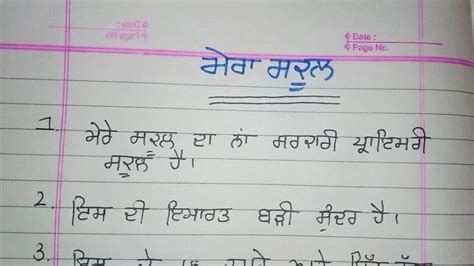 Date :
Page No.
ਮੇਰਾ ਸਕੂਲ
1. ਮੇਰੇ ਸਕੂਲ ਦਾ ਨਾਂ ਸਰਕਾਰੀ ਪ੍ਰਾਇਮਰੀ
ਸਕੂਲ ਹੈ।
2. ਇਸ ਦੀ ਇਮਾਰਤ ਬੜੀ ਸੁੰਦਰ ਹੈ।
3.